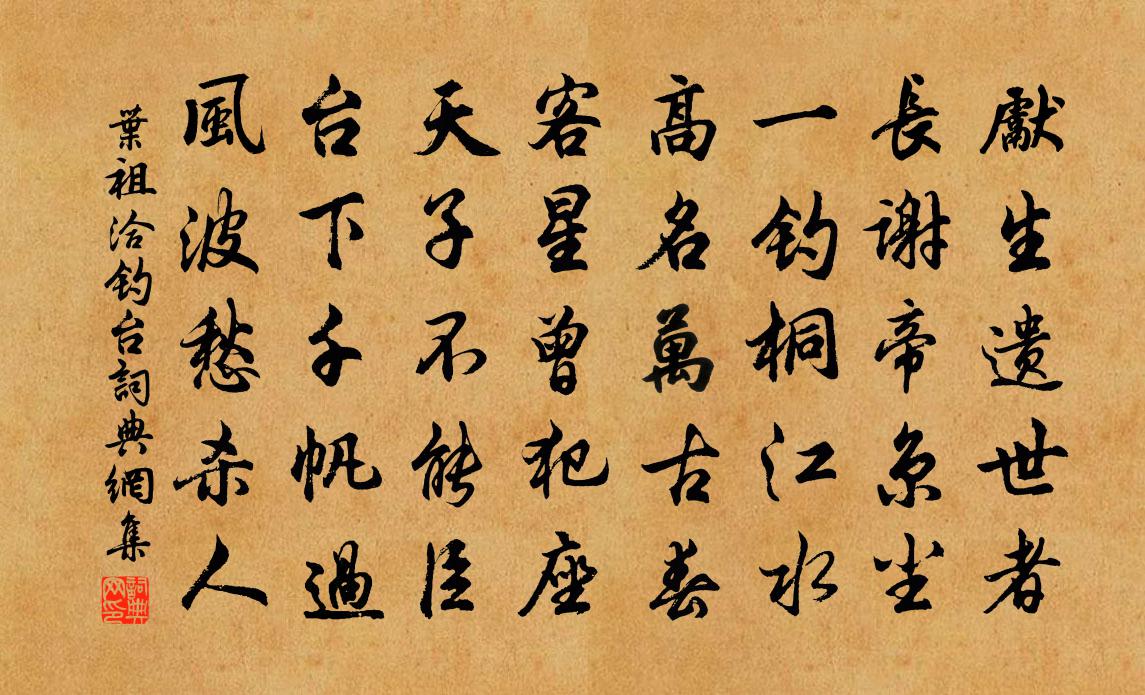 獻生遺世者
長謝帝京塵
一釣桐江水
高名萬古春
客星曾犯座
天子不能臣
台下千帆過
風波愁杀人
葉祖洽釣台詞典網集
詞典网印